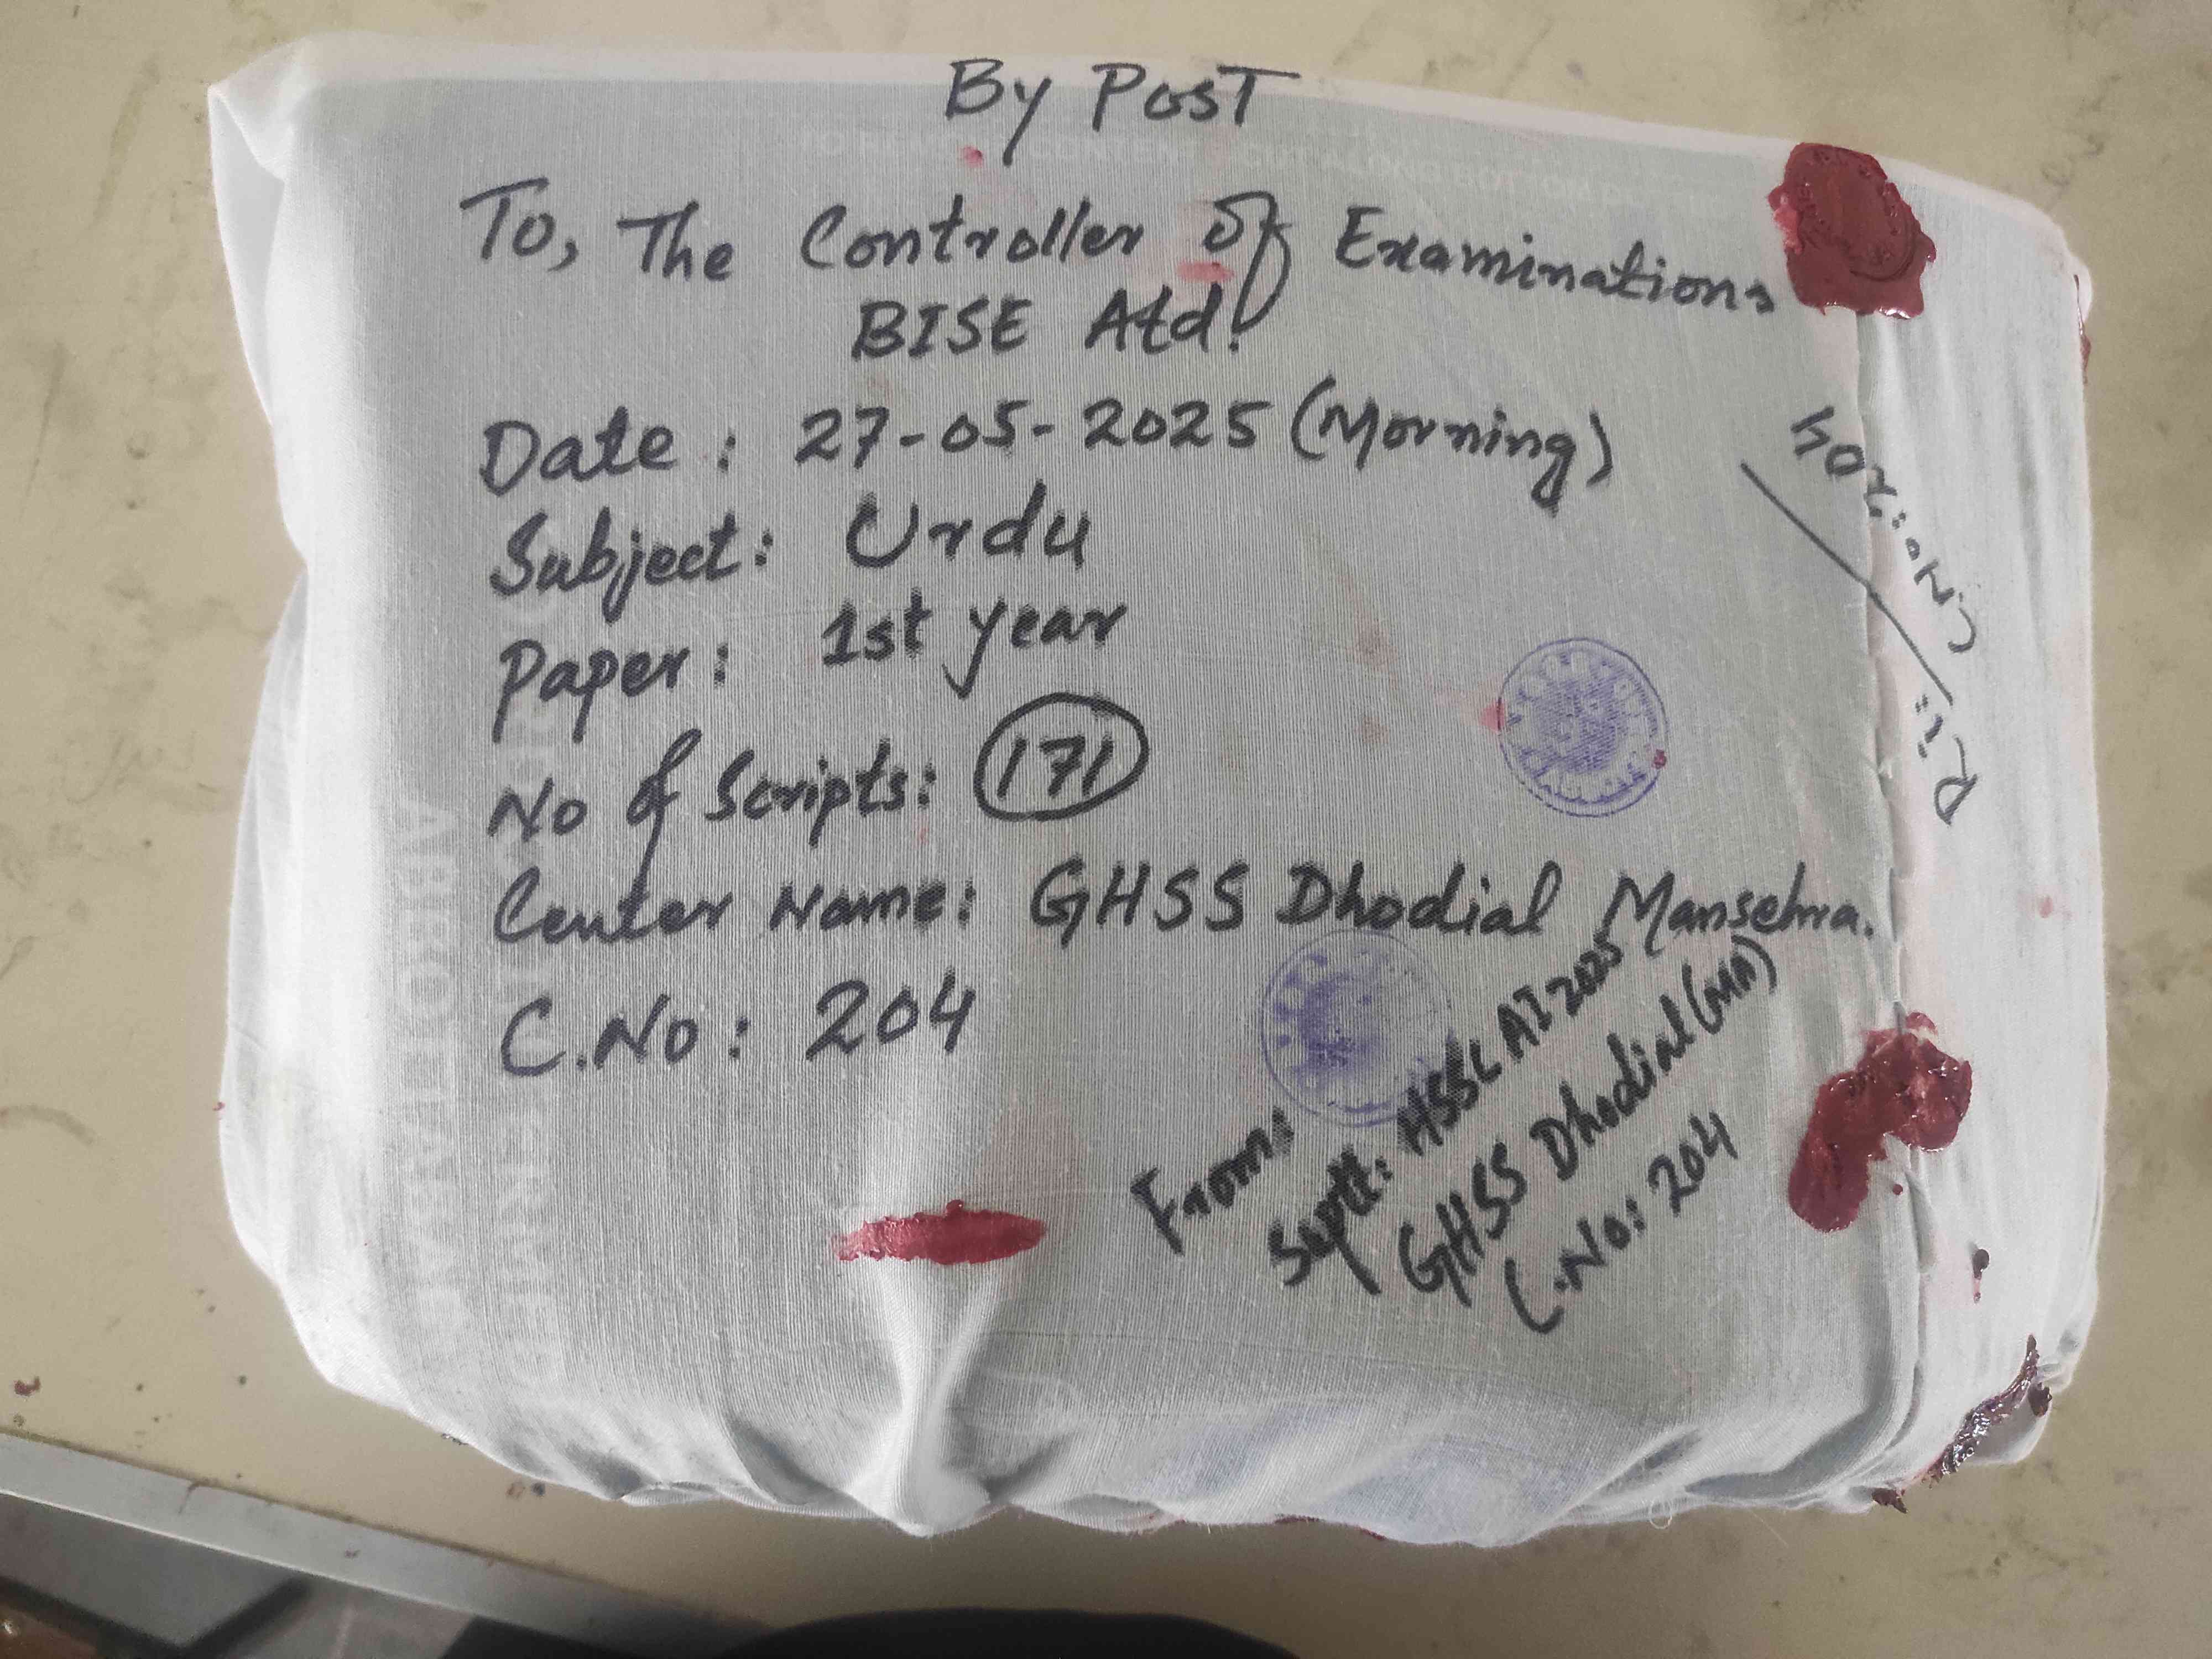 By Post
To, The Controller of Examinations
BISE Atd.
Date : 27-05-2025 (Morning)
Subject: Urdu
Paper: 1st year
No of Scripts: 171
Center Name: GHSS Dhodial Mansehra.
C.No: 204
From:
Suptt: HSSC AI-2025
GHSS Dhodial (MA)
C.No: 204
C.No: 204